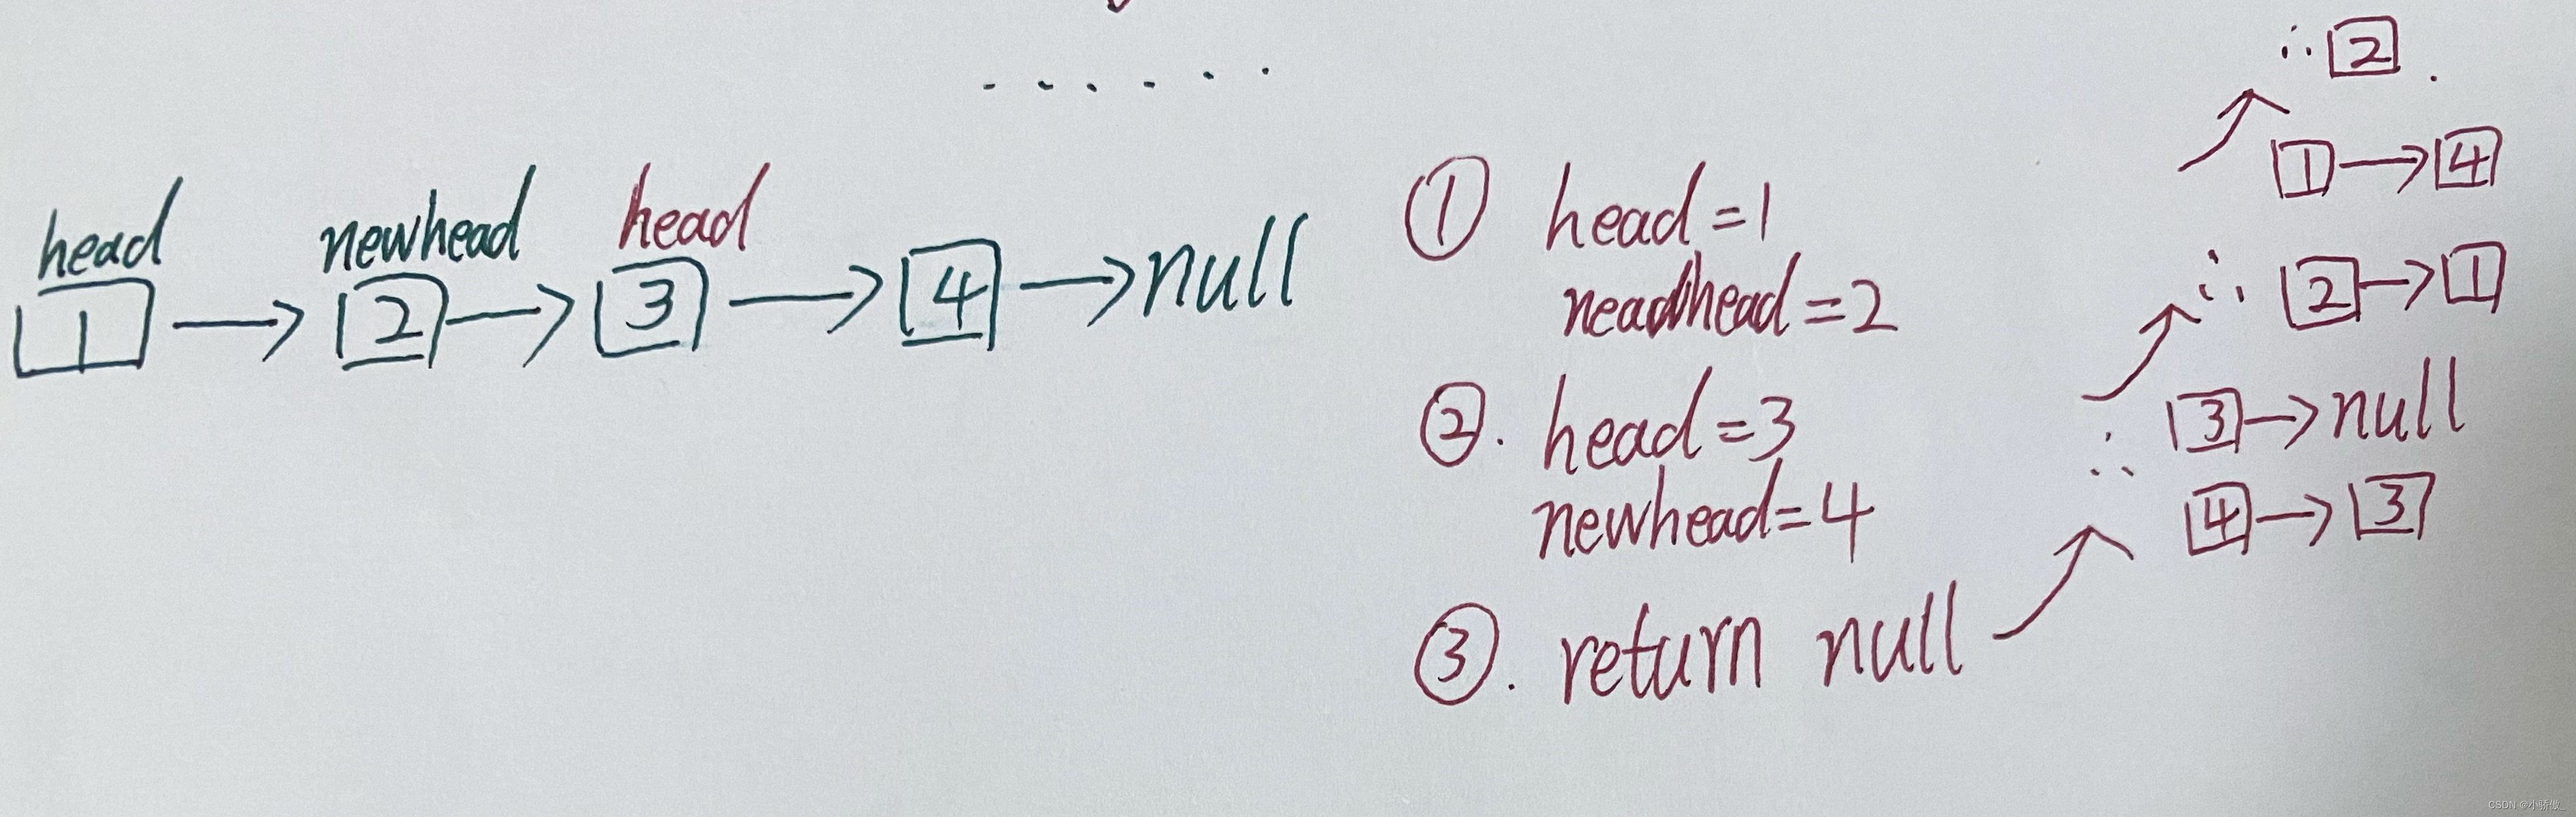 head newhead head
1 → 2 → 3 → 4 → null
① head=1
neadhead=2
②. head=3
newhead=4
③. return null
∴ 2.
1 → 4
∴ 2 → 1
3 → null
∴
4 → 3
CSDN @小骄傲_